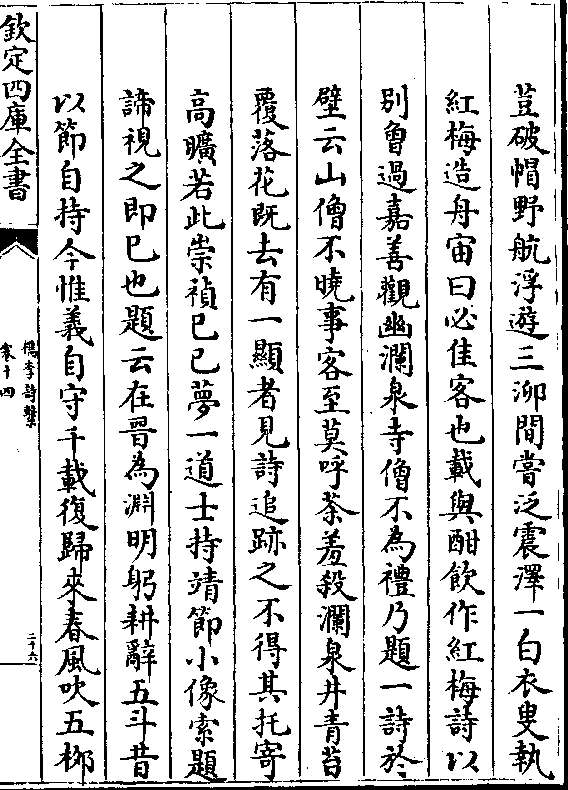 荳破帽野航浮遊三泖間嘗泛震澤一白衣叟執
紅梅造舟宙曰必佳客也載與酣飲作紅梅詩以
别曾過嘉善觀幽瀾泉寺僧不為禮乃題一詩於
壁云山僧不曉事客至莫呼茶羞殺瀾泉井青苔
覆落花既去有一顯者見詩追跡之不得其托寄
高曠若此崇禎己巳夢一道士持靖節小像索題
諦視之即已也題云在晋為淵明躬耕辭五斗昔
以節自持今惟義自守千載復歸來春風吹五栁
欽定四庫全書
檇李詩繫
卷十四
二十六